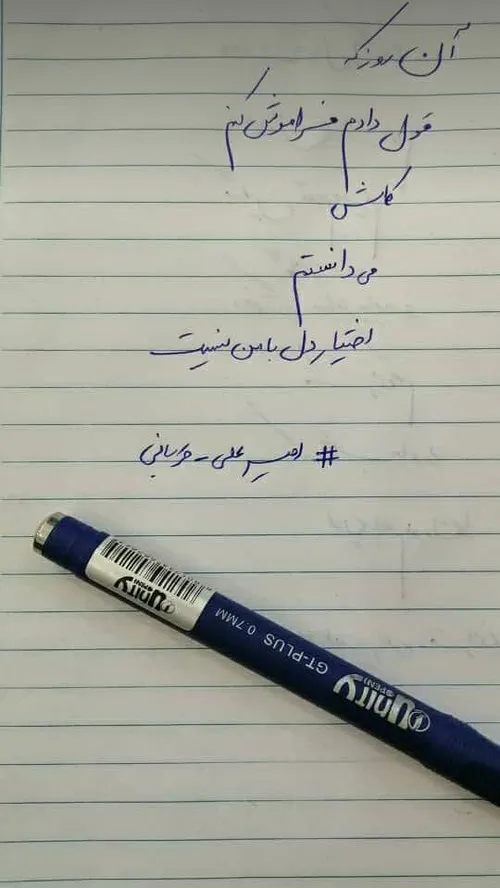 آن روز که
قول دادم فراموش کنم
کاش
می دانستم
اختیار دل با من نیست
# امیر_علی_قربانی
UNITY
(PEN)
GT-PLUS 0.7MM
UNITY
(PEN)